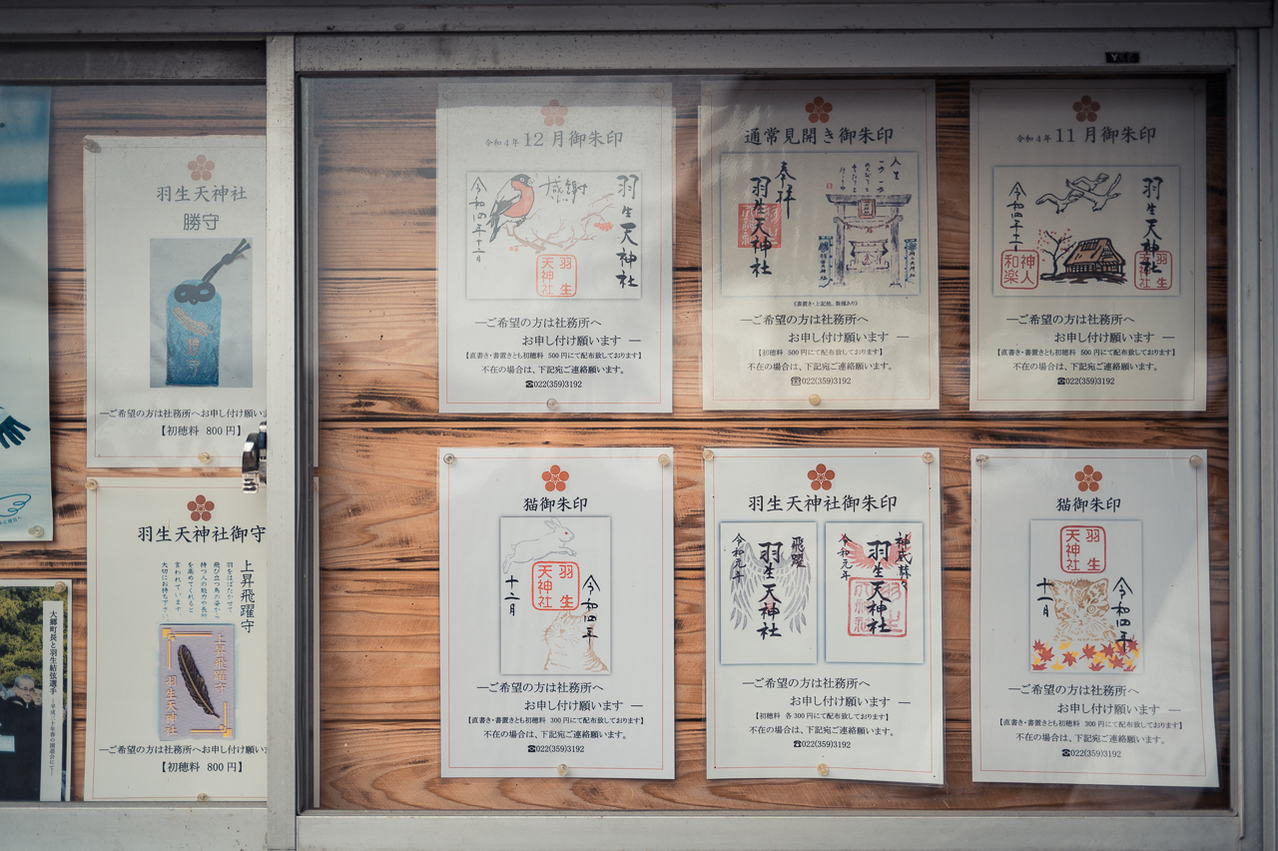 羽生天神社
勝守
―ご希望の方は社務所へお申し付け願い
【初穂料 800円】
羽生天神社御守
上昇飛躍守
羽をはばたかせて
飛び立つ鳥の姿から
持つ人の能力や長所
を高めてくれると
言われています。
大切にお持ち下さい
上昇飛躍守
羽生天神社
―ご希望の方は社務所へお申し付け願い
【初穂料 800円】
大郷町長と羽生結弦選手
令和4年12月御朱印
感謝
羽生天神社
令和四年十二月
羽生天神社
―ご希望の方は社務所へ
お申し付け願います―
【直書き・書置きとも初穂料 500円にて配布致しております】
不在の場合は、下記宛ご連絡願います。
☎022(359)3192
通常見開き御朱印
奉拝
羽生天神社
人生
《書置き・上記他、数種あり》
―ご希望の方は社務所へ
お申し付け願います―
【初穂料 500円にて配布致しております】
不在の場合は、下記宛ご連絡願います。
☎022(359)3192
令和4年11月御朱印
羽生天神社
令和四年十一月
神人和楽
―ご希望の方は社務所へ
お申し付け願います―
【直書き・書置きとも初穂料 500円にて配布致しております】
不在の場合は、下記宛ご連絡願います。
☎022(359)3192
猫御朱印
羽生天神社
令和四年
十二月
―ご希望の方は社務所へ
お申し付け願います―
【直書き・書置きとも初穂料 300円にて配布致しております】
不在の場合は、下記宛ご連絡願います。
☎022(359)3192
羽生天神社御朱印
飛躍
羽生天神社
令和元年
羽生天神社
令和元年
―ご希望の方は社務所へ
お申し付け願います―
【初穂料 各300円にて配布致しております】
不在の場合は、下記宛ご連絡願います。
☎022(359)3192
猫御朱印
羽生天神社
令和四年
十一月
―ご希望の方は社務所へ
お申し付け願います―
【直書き・書置きとも初穂料 300円にて配布致しております】
不在の場合は、下記宛ご連絡願います。
☎022(359)3192